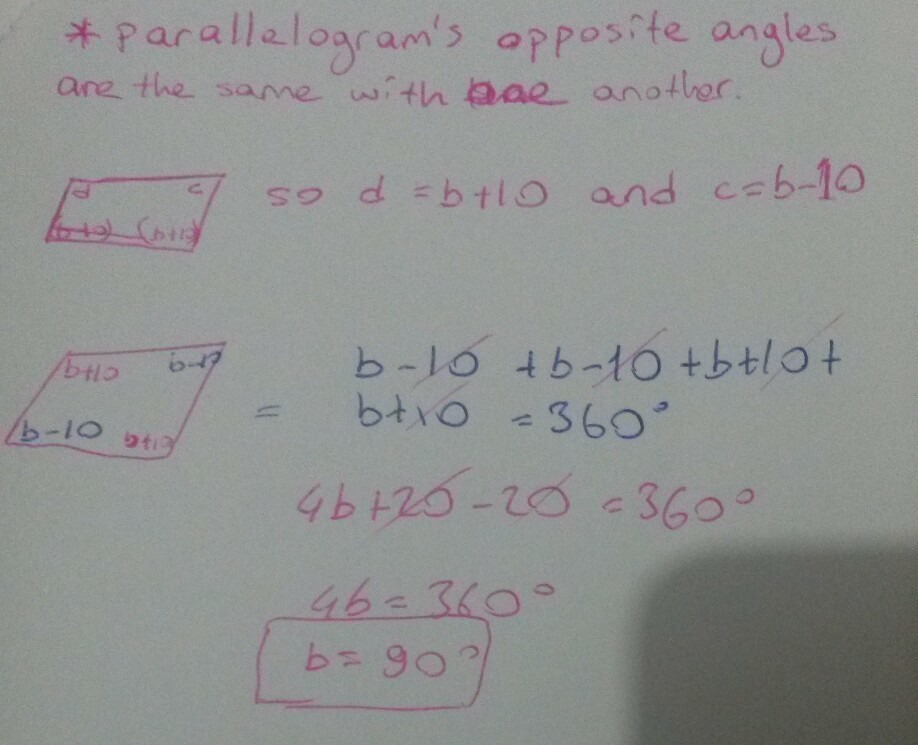 * parallelogram's opposite angles
are the same with one another.
d c
so d = b+10 and c=b-10
(b+10)
b+10 b-10
b-10 b+10
= b-10 +b-10 +b+10+
b+10 =360°
4b+20-20 =360°
4b = 360°
b= 90°